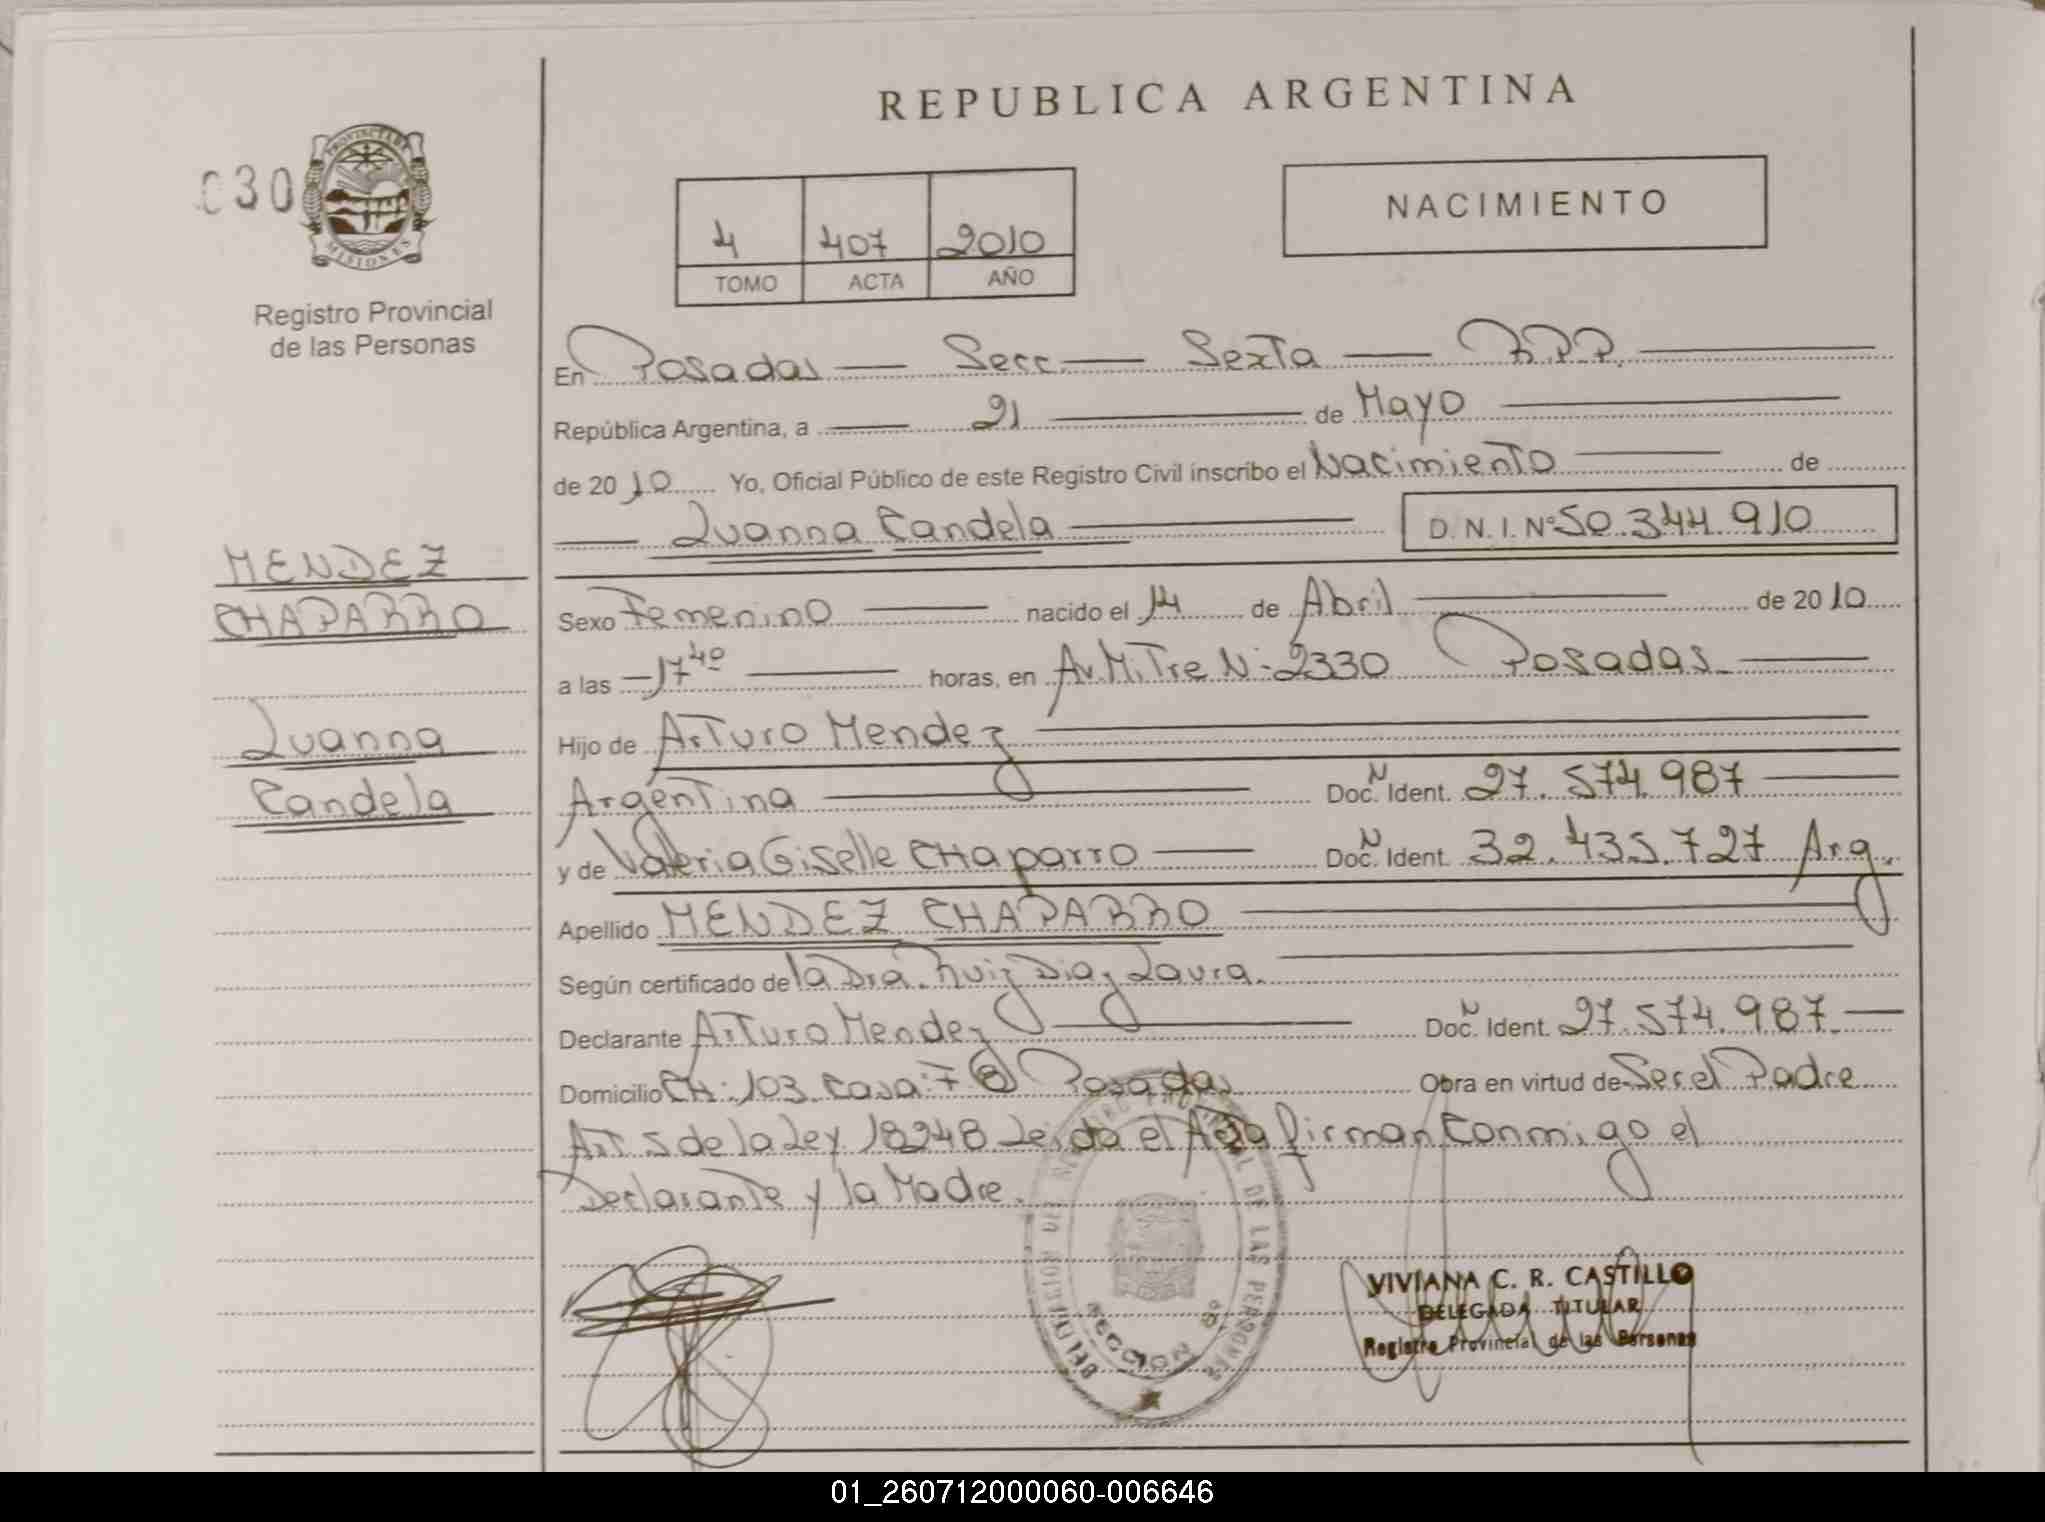 REPUBLICA ARGENTINA
030
PROVINCIA DE
MISIONES
Registro Provincial
de las Personas
4 407 2010
TOMO ACTA AÑO
NACIMIENTO
En Posadas — Secc. — Sexta — R.P.P.
República Argentina, a — 21 — de Mayo
de 2010 Yo, Oficial Público de este Registro Civil inscribo el Nacimiento — de
— Luanna Candela — D.N.I. Nº 50.344.910
MENDEZ
CHAPARRO
Luanna
Candela
Sexo Femenino — nacido el 14 de Abril — de 2010
a las — 17 40 — horas, en Av. Mitre N: 2330 Posadas —
Hijo de Arturo Mendez —
Argentina — Doc. N Ident. 27.574.987 —
y de Valeria Giselle Chaparro — Doc. N Ident. 32.435.727 Arg.
Apellido MENDEZ CHAPARRO —
Según certificado de la Dra. Ruiz Diaz Laura. —
Declarante Arturo Mendez — Doc. N Ident. 27.574.987. —
Domicilio CH: 103 Casa: 7 Posadas Obra en virtud de Ser el Padre
Art. 5 de la Ley 18248 Leida el Acta firman Conmigo el
Declarante y la Madre.
DE LAS PERSONAS
SECCION
VIVIANA C. R. CASTILLO
DELEGADA TITULAR
Registro Provincial de las Personas
01_260712000060-006646